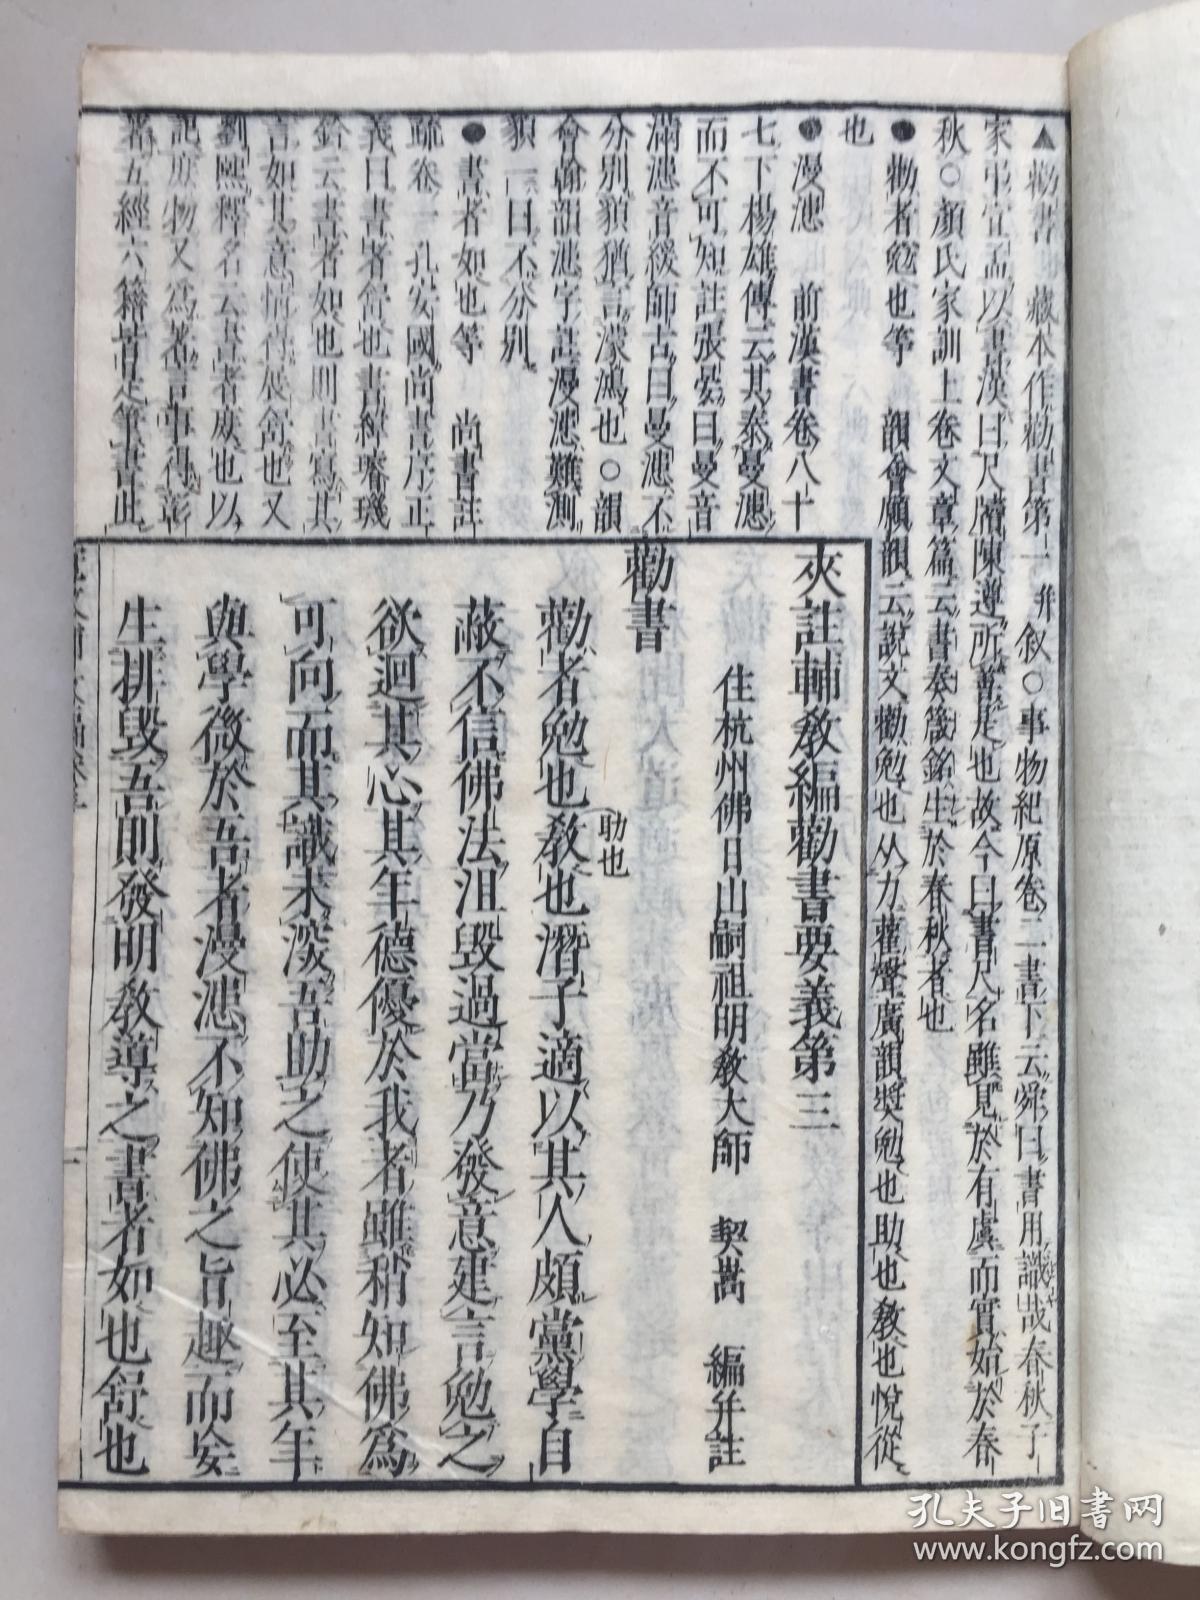 ▲勸書 藏本作勸書第一并叙○事物紀原卷二書下云舜曰書用識哉春秋子
家弔宜孟以書漢曰尺牘陳遵所善是也故今曰書尺名雖見於有虞而實始於春
秋○顏氏家訓上卷文章篇云書奏箴銘生於春秋者也
●勸者勉也等 韻會願韻云說文勸勉也从力雚聲廣韻奬勉也助也教也悅從
也
●漫漶 前漢書卷八十
七下楊雄傳云其泰曼漶
而不可知註張晏曰曼音
滿漶音緩師古曰曼漶不
分別貌猶言濛鴻也○韻
會翰韻漶字註漫漶難測
貌一曰不分別
●書者如也等 尚書註
疏卷一孔安國尚書序正
義曰書者舒也書緯璿璣
鈐云書者如也則書寫其
言如其意情得展舒也又
劉熙釋名云書者庶也以
記庶物又爲著言事得彰
著五經六籍皆是筆書此
夾註輔教編勸書要義第三
住杭州佛日山嗣祖明教大師 契嵩 編并註
勸書
勸者勉也助也教也潛子適以其人頗黨學自
蔽不信佛法沮毀過當乃發意建言勉之
欲迴其心其年德優於我者雖稍知佛爲
可向而其識未㴱吾助之使其必至其年
與學微於吾者漫漶不知佛之旨趣而妄
生排毀吾則發明教導之書者如也舒也
一
孔夫子旧书网
www.kongfz.com